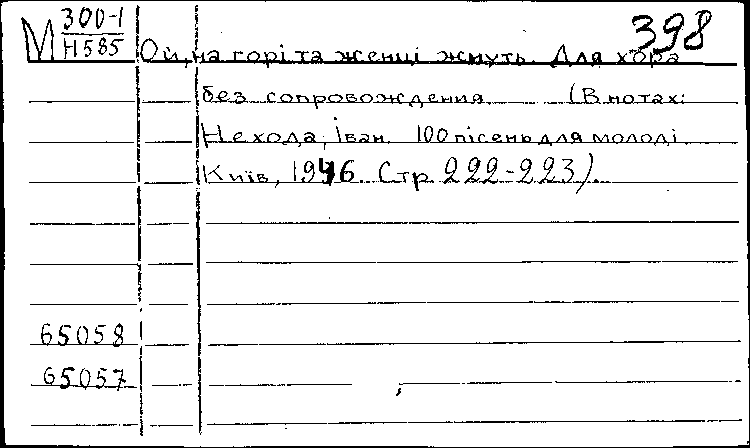 М 300-1
Н585
398
Ой, на горі та женці жнуть. Для хора
без сопровождения. (В нотах:
Нехода, Іван. 100 пісень для молоді.
Київ, 1946. Стр. 222-223).
65058
65057